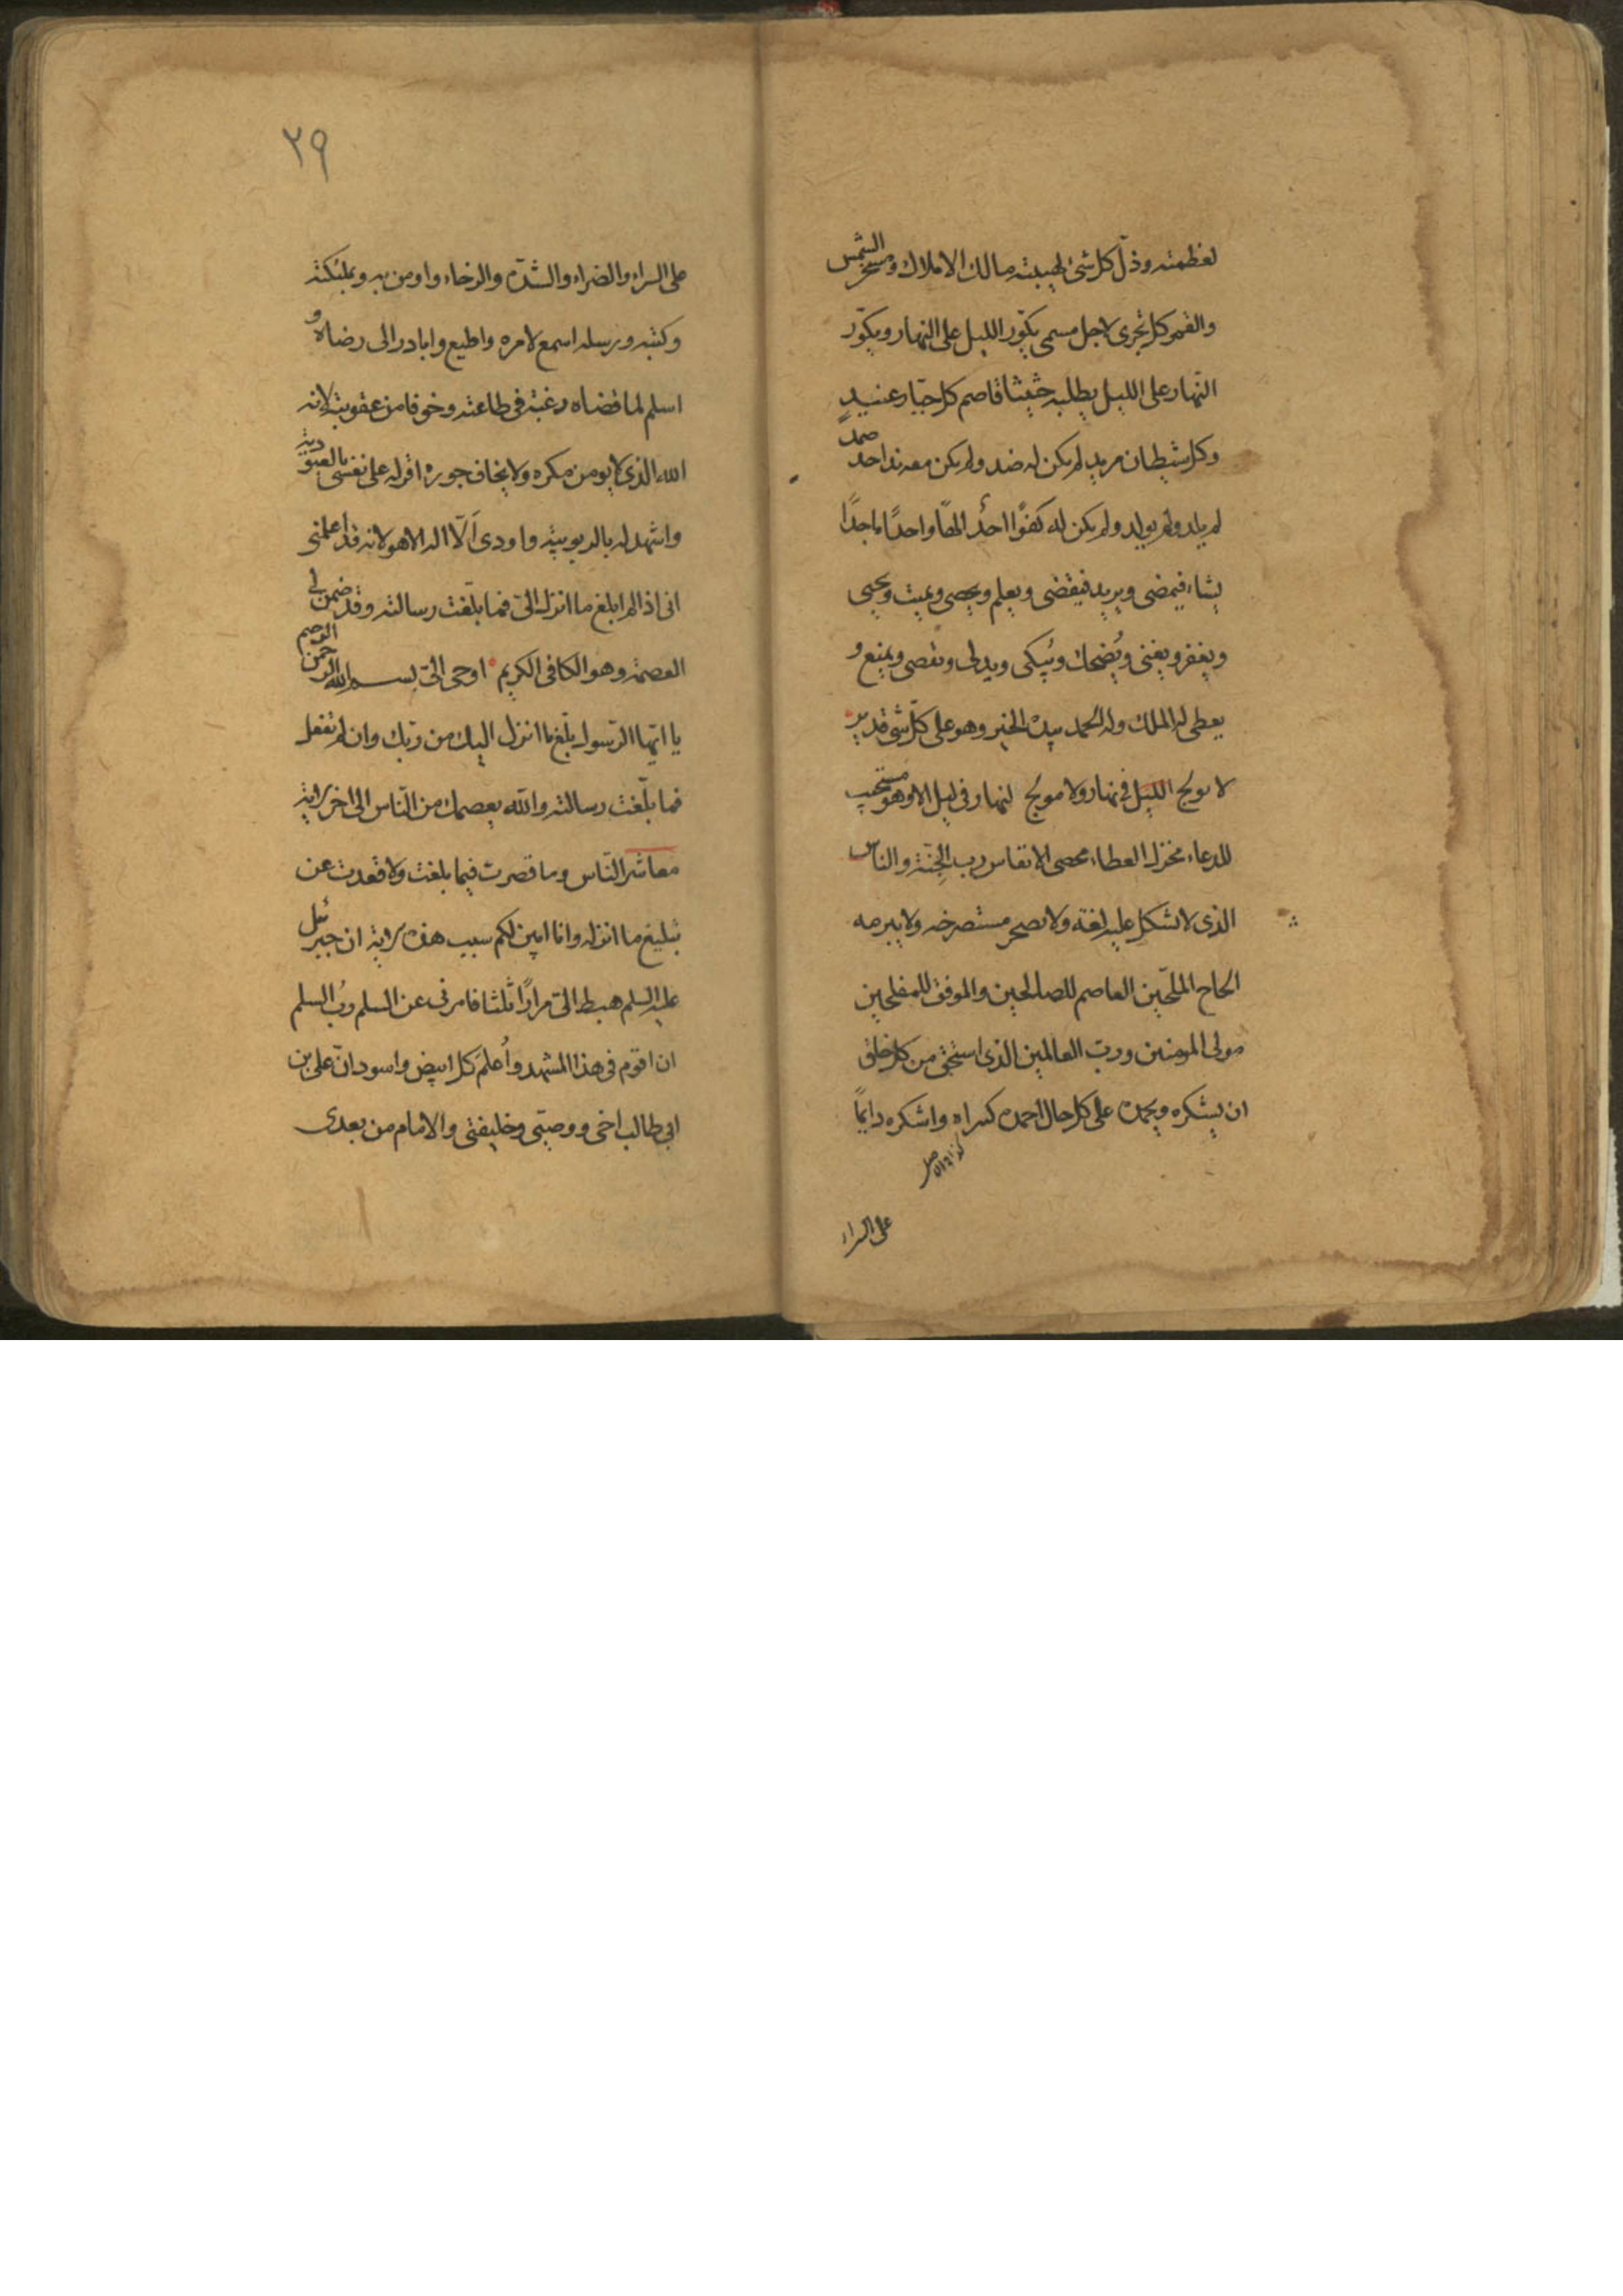 لعظمته وذلّ كل شئ لهيبته مالك الاملاك ومسخر الشمس
والقمر كل تجرى لاجل مسمى يكوّر الليل على النهار ويكوّر
النّهار على الليل يطلبه حثيثا قاصم كل جبّار عنيدٍ
وكل شيطان مريد لم يكن له ضد ولم يكن معه ند احد صمد
لم يلد ولم يولد ولم يكن له كفوًا احدٌ الهًا واحدًا ماجدًا
يشاء فيمضى ويريد فيقضى ويعلم ويحصى ويميت ويحيى
ويفقر ويغنى ويُضحك ويُبكى ويدلى ويقصى ويمنع و
يعطى له الملك وله الحمد بيده الخير وهو على كلّ شئ قدير
لا يولج الليل فى نهار ولا مولج لنهار فى ليل الا وهو مستجيب
للدعاء مجزل العطاء محصى الانفاس رب الجنّة والناس
الذى لا تشكل عليه لغة ولا يضجر مستصرخه ولا يبرمه
الحاح الملحّين العاصم للصالحين والموفق للمفلحين
مولى المومنين وربّ العالمين الذى استحق من كل خلق
ان يشكره ويحمده على كل حال احمده كثيرا واشكره دايمًا
على السراء
٢٩
على السراء والضراء والشدّة والرخاء واومن به وبملئكته
وكتبه ورسله اسمع لامره واطيع وابادر الى رضاه و
اسلم لما قضاه رغبة فى طاعته وخوفا من عقوبته لانه
الله الذى لا يومن مكره ولا يخاف جوره اقر له على نفسى بالعبودية
واشهد له بالربوبية واودى اَلّا اله الا هو لانه قد اعلمنى
انى اذا لم ابلغ ما انزله الىّ فما بلّغت رسالته وقد ضمن لى
العصمة وهو الكافى الكريم اوحى الىّ بسم الله الرحمن الرحيم
يا ايّها الرّسول بلّغ ما انزل اليك من ربّك وان لم تفعل
فما بلّغت رسالته والله يعصمك من النّاس الى اخر الاية
معاشر النّاس وما قصرت فيما بلغت ولا قعدت عن
تبليغ ما انزله وانا ابين لكم سبب هذه الاية ان جبرئيل
عليه السلم هبط الىّ مرارًا ثلثا فامرنى عن السلم ربُ السلم
ان اقوم فى هذا المشهد واُعلمَ كل ابيض واسود انّ على بن
ابى طالب اخى ووصيّى وخليفتى والامام من بعدى